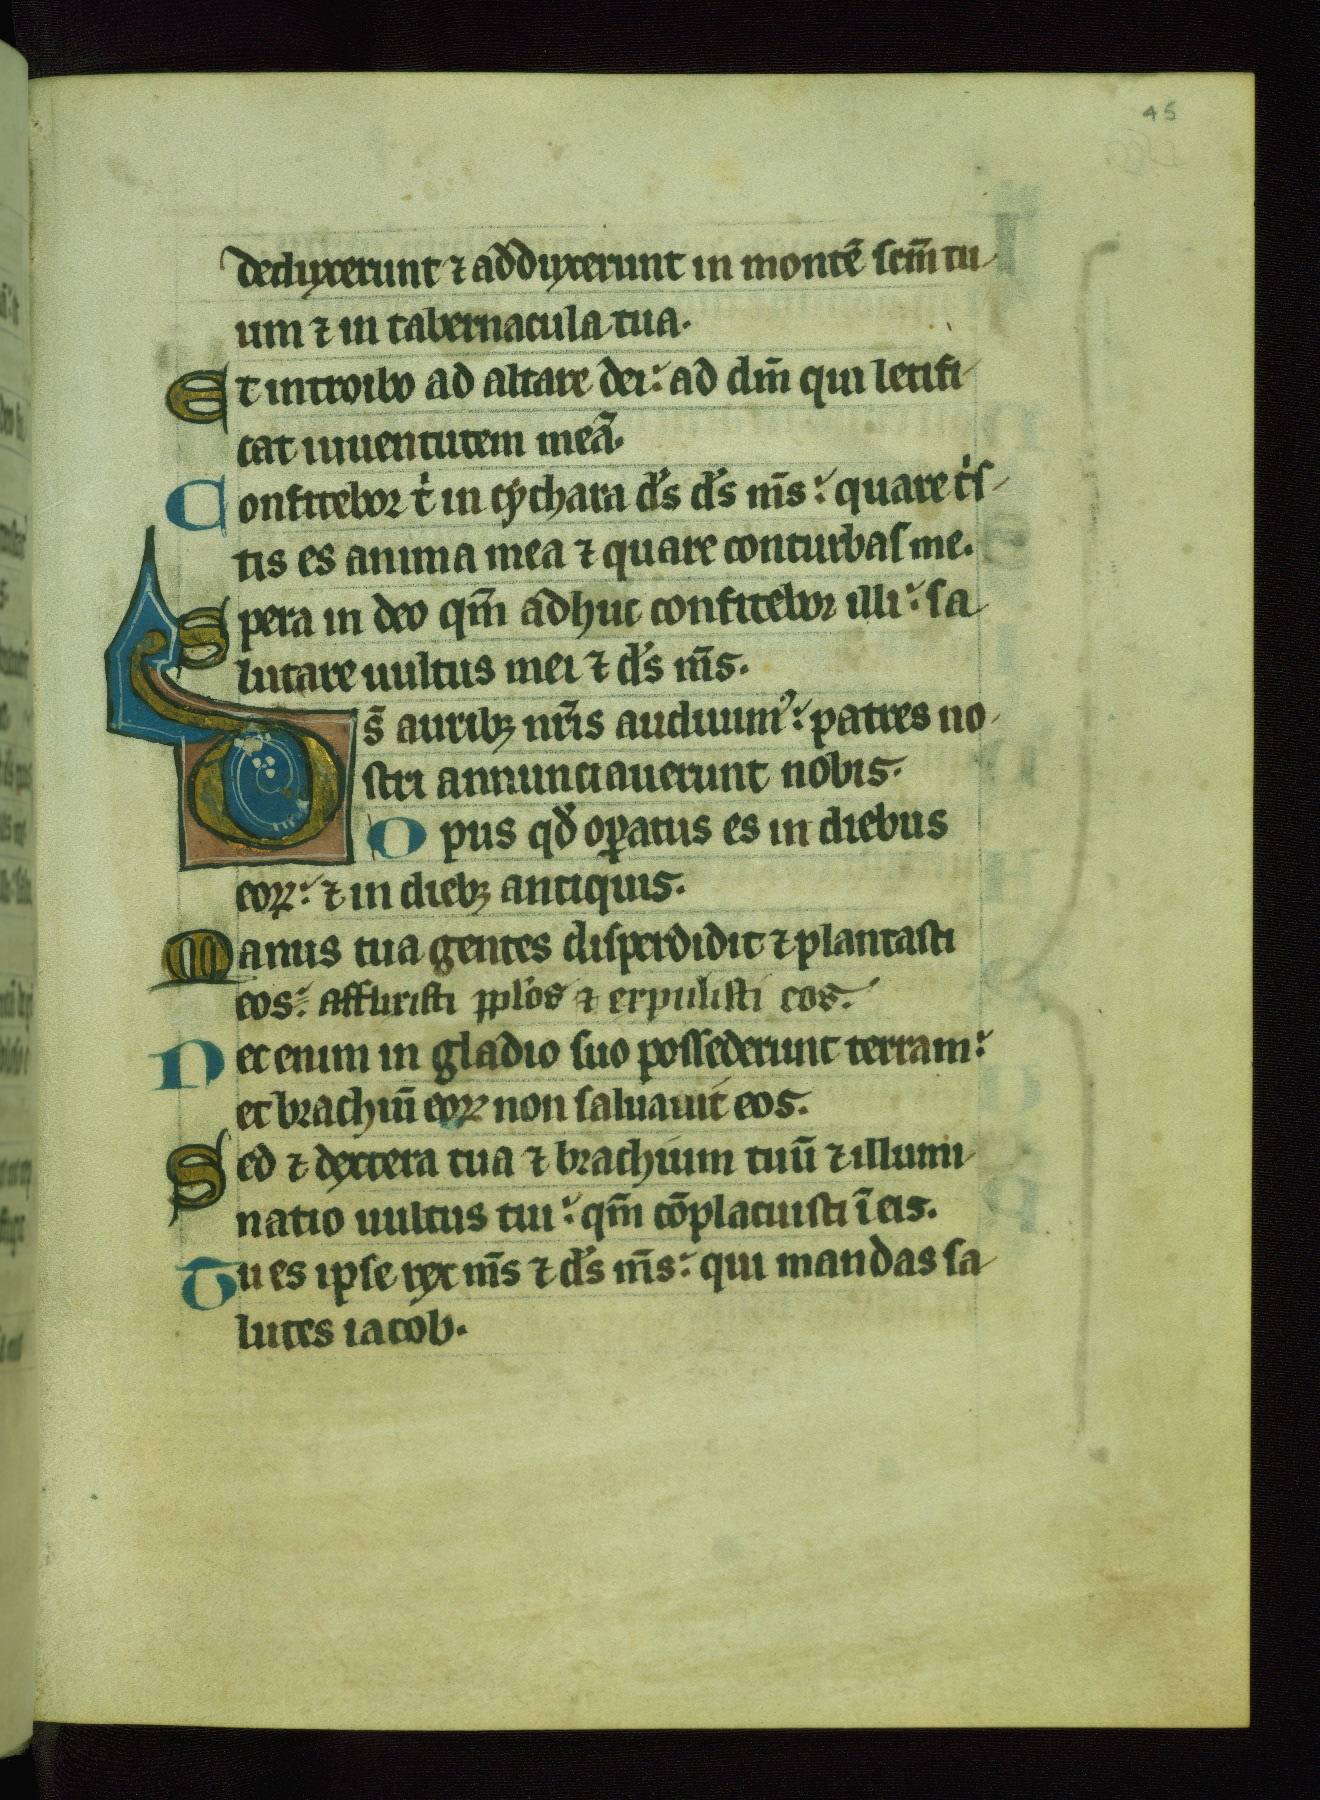 45
deduxerunt ⁊ adduxerunt in montē scm̄ tu
um ⁊ in tabernacula tua.
Et introibo ad altare dei: ad dm̄ qui letifi
cat iuuentutem meā.
Confitebor t̍ in cẏthara ds̄ ds̄ ms̄: quare t̍s
tis es anima mea ⁊ quare conturbas me.
Spera in deo qm̄ adhuc confitebor illi: sa
lutare uultus mei ⁊ ds̄ ms̄.
Ds̄ auribꝫ nr̄is audiuimꝰ: patres no
stri annunciauerunt nobis.
Opus qd̄ oꝑatus es in diebus
eoꝝ: ⁊ in diebꝫ antiquis.
Manus tua gentes disperdidit ⁊ plantasti
eos: affluxisti pplo̍s ⁊ expulisti eos.
Nec enim in gladio suo possederunt terram:
et brachiū eoꝝ non saluauit eos.
Sed ⁊ dextera tua ⁊ brachium tuū ⁊ illumi
natio uultus tui: qm̄ cōplacuisti ī eis.
Tu es ipse rex ms̄ ⁊ ds̄ ms̄: qui mandas sa
lutes iacob.